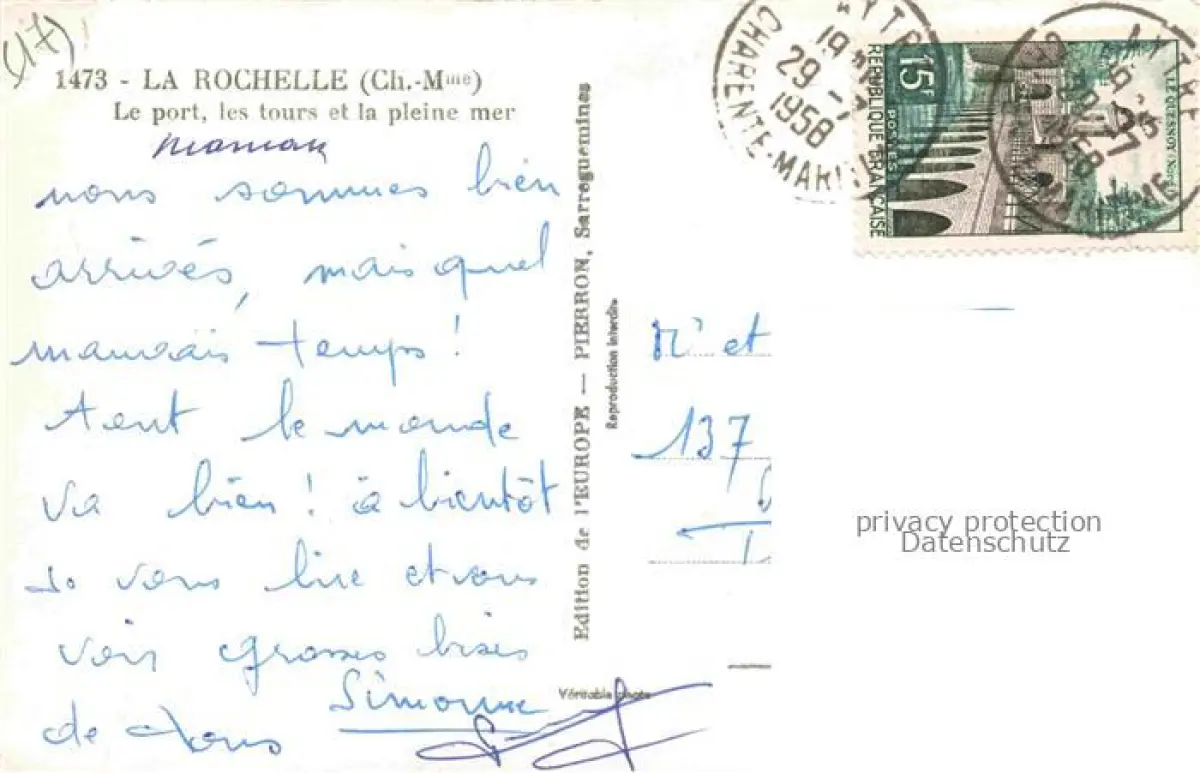 (17)
1473 - LA ROCHELLE (Ch.-Mme)
Le port, les tours et la pleine mer
maman
nous sommes bien
arrivés, mais quel
mauvais temps!
tout le monde
va bien! à bientôt
de vous lire et vous
voir grosses bises
de tous
Simone
Edition de l'EUROPE — PIERRON, Sarreguemines
Reproduction interdite
Véritable photo
AYTRE
19
29 -7
1958
CHARENTE-MARITIME
15F
POSTES
REPUBLIQUE FRANÇAISE
LE QUESNOY (Nord)
AYTRE
1958
Mr et
137
privacy protection
Datenschutz